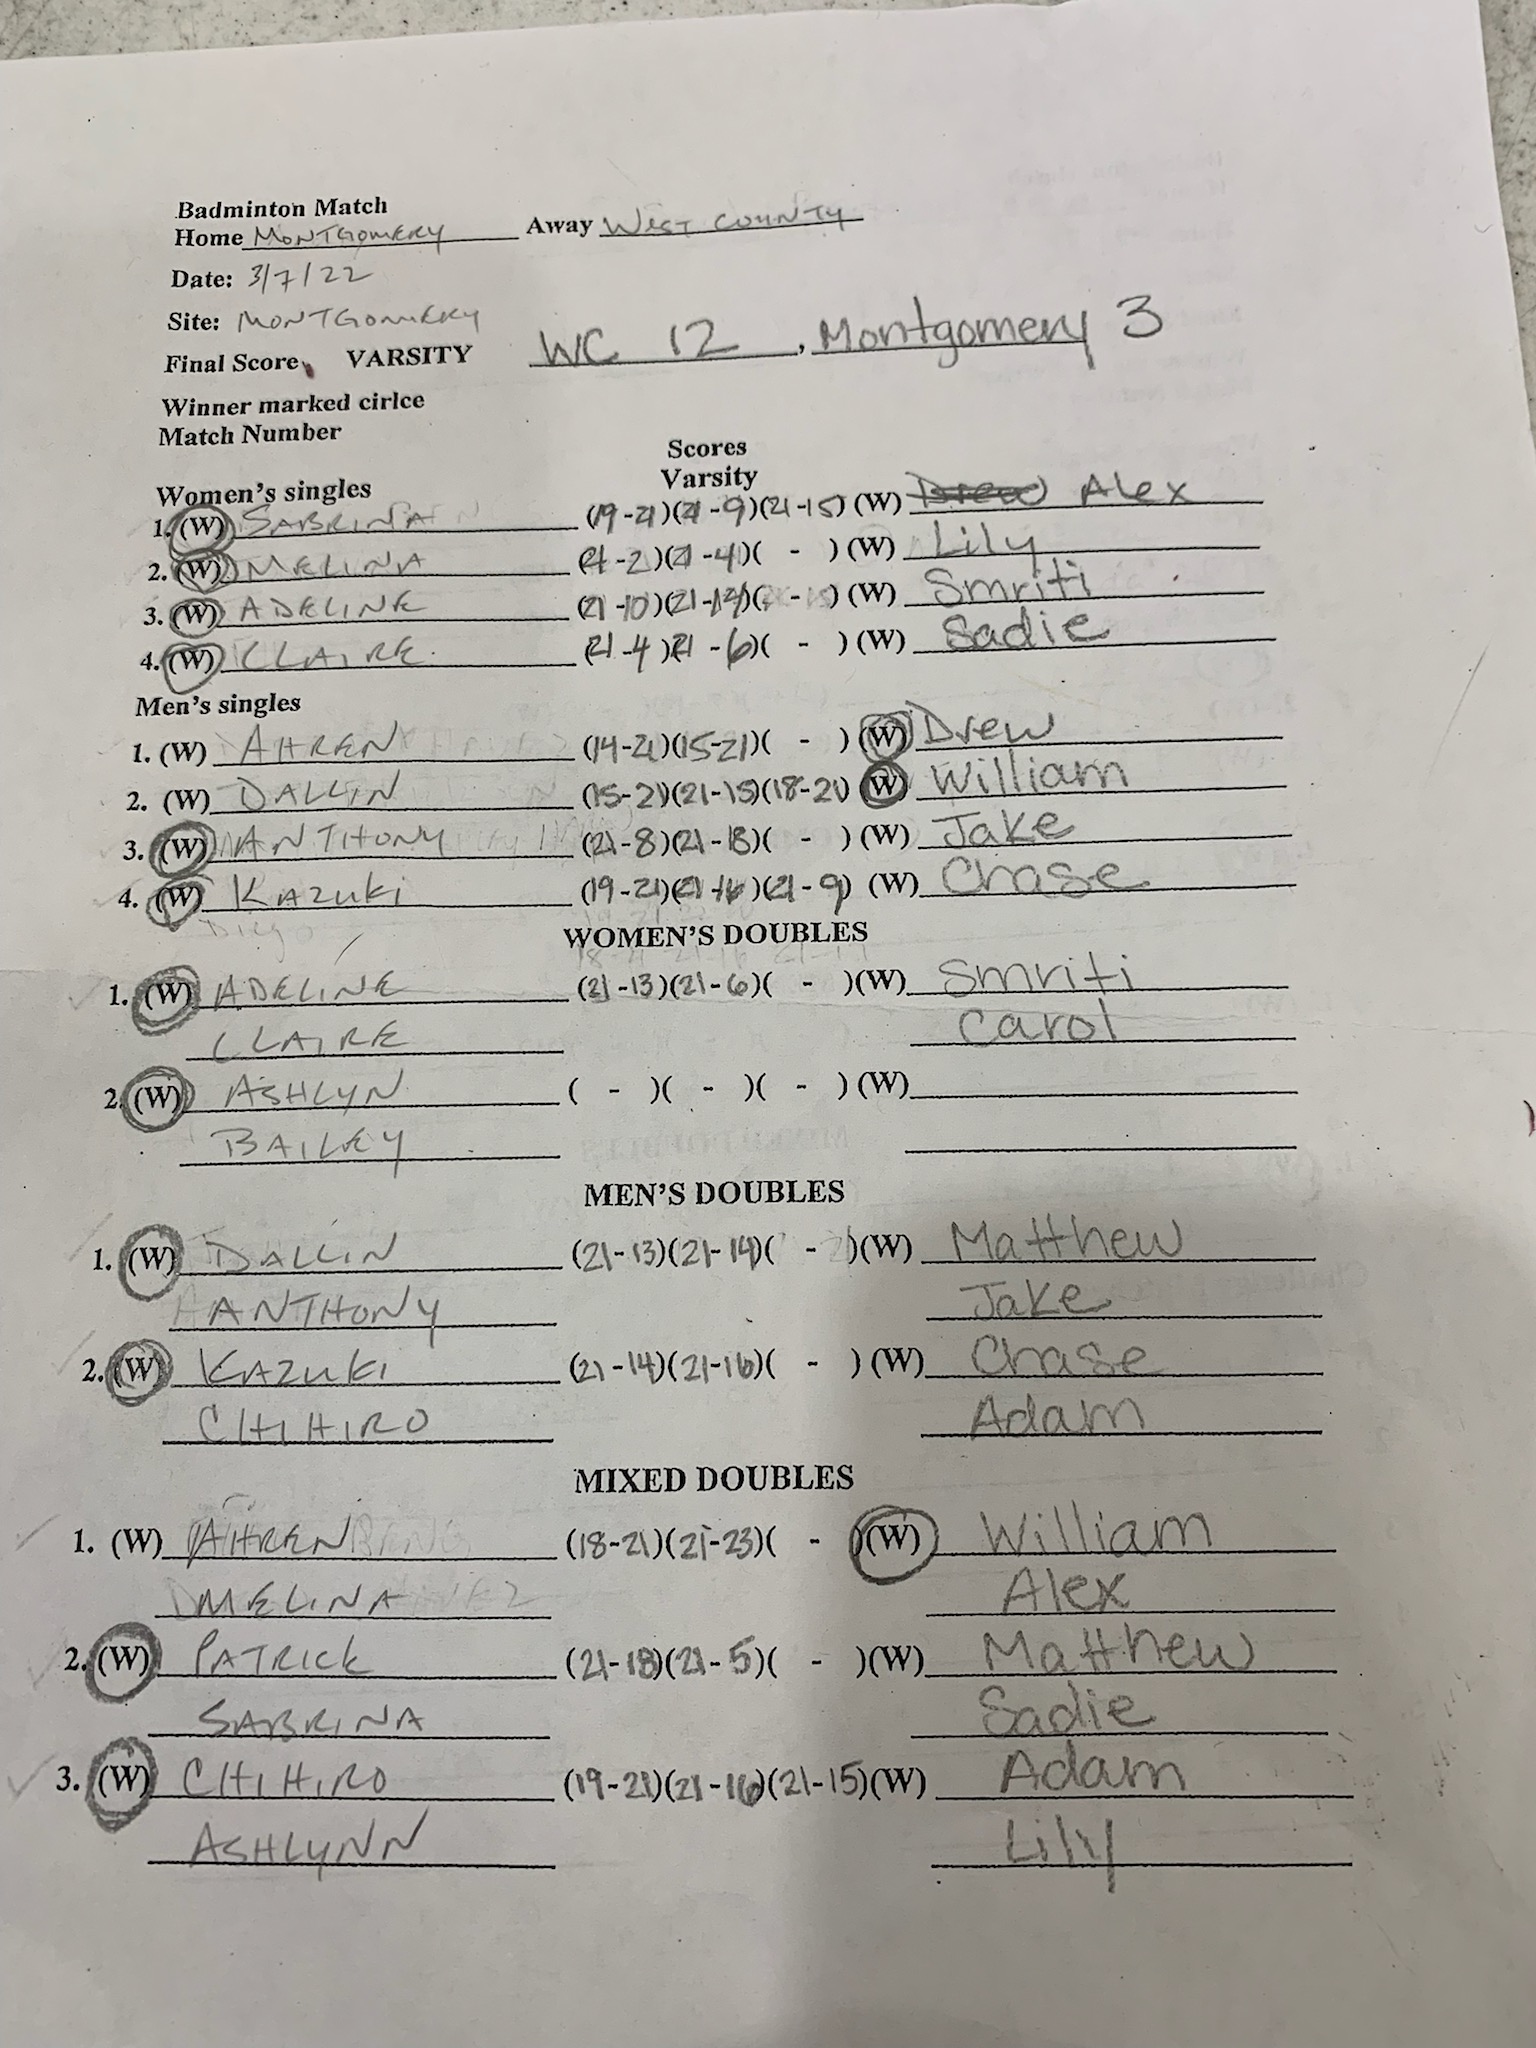 Badminton Match
Home MONTGOMERY Away WEST COUNTY
Date: 3/7/22
Site: MONTGOMERY
Final Score, VARSITY WC 12, Montgomery 3
Winner marked cirlce
Match Number
Scores
Varsity
Women's singles
1. (W) SABRINA (19-21)(21-9)(21-15) (W) Drew Alex
2. (W) MELINA (21-2)(21-4)( - ) (W) Lily
3. (W) ADELINE (21-10)(21-12)( - ) (W) Smriti
4. (W) CLAIRE (21-4)(21-6)( - ) (W) Sadie
Men's singles
1. (W) AHREN (14-21)(15-21)( - ) (W) Drew
2. (W) DALLIN (15-21)(21-15)(18-21) (W) William
3. (W) ANTHONY (21-8)(21-18)( - ) (W) Jake
4. (W) KAZUKI (19-21)(21-16)(21-9) (W) Chase
Diego
WOMEN'S DOUBLES
1. (W) ADELINE (21-13)(21-6)( - )(W) Smriti
CLAIRE Carol
2. (W) ASHLYN ( - )( - )( - ) (W)
BAILEY
MEN'S DOUBLES
1. (W) DALLIN (21-13)(21-14)( - )(W) Matthew
ANTHONY Jake
2. (W) KAZUKI (21-14)(21-16)( - ) (W) Chase
CHIHIRO Adam
MIXED DOUBLES
1. (W) AHREN (18-21)(21-23)( - )(W) William
MELINA Alex
2. (W) PATRICK (21-18)(21-5)( - )(W) Matthew
SABRINA Sadie
3. (W) CHIHIRO (19-21)(21-16)(21-15)(W) Adam
ASHLYNN Lily